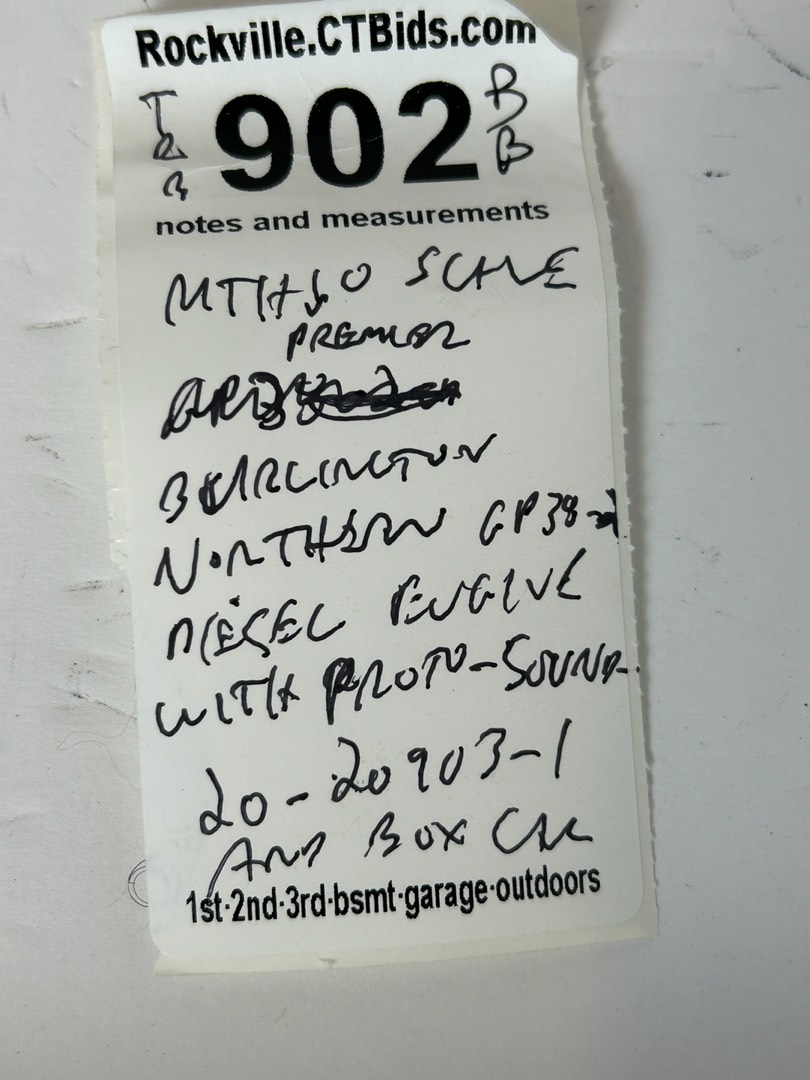 Rockville.CTBids.com
902
B
B
notes and measurements
MTH O SCALE
PREMIER
BURLINGTON
NORTHERN GP38-2
DIESEL ENGINE
WITH PROTO-SOUND
20-20903-1
AND BOX CAR
1st·2nd·3rd·bsmt·garage·outdoors